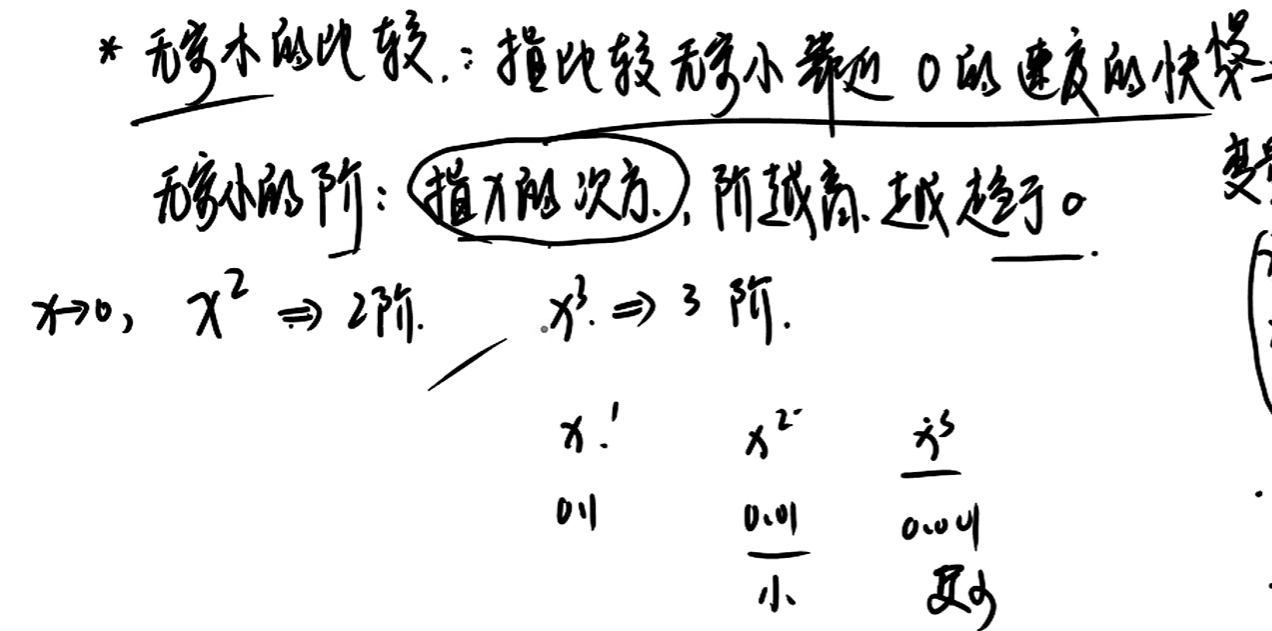 * 无穷小的比较.：指比较无穷小靠近 0 的速度的快慢
无穷小的阶：指x的次方.，阶越高.越趋于0.
x→0, x² ⇒ 2阶. x³. ⇒ 3 阶.
x.¹ x² x³
0.1 0.01 0.001
小、 更小